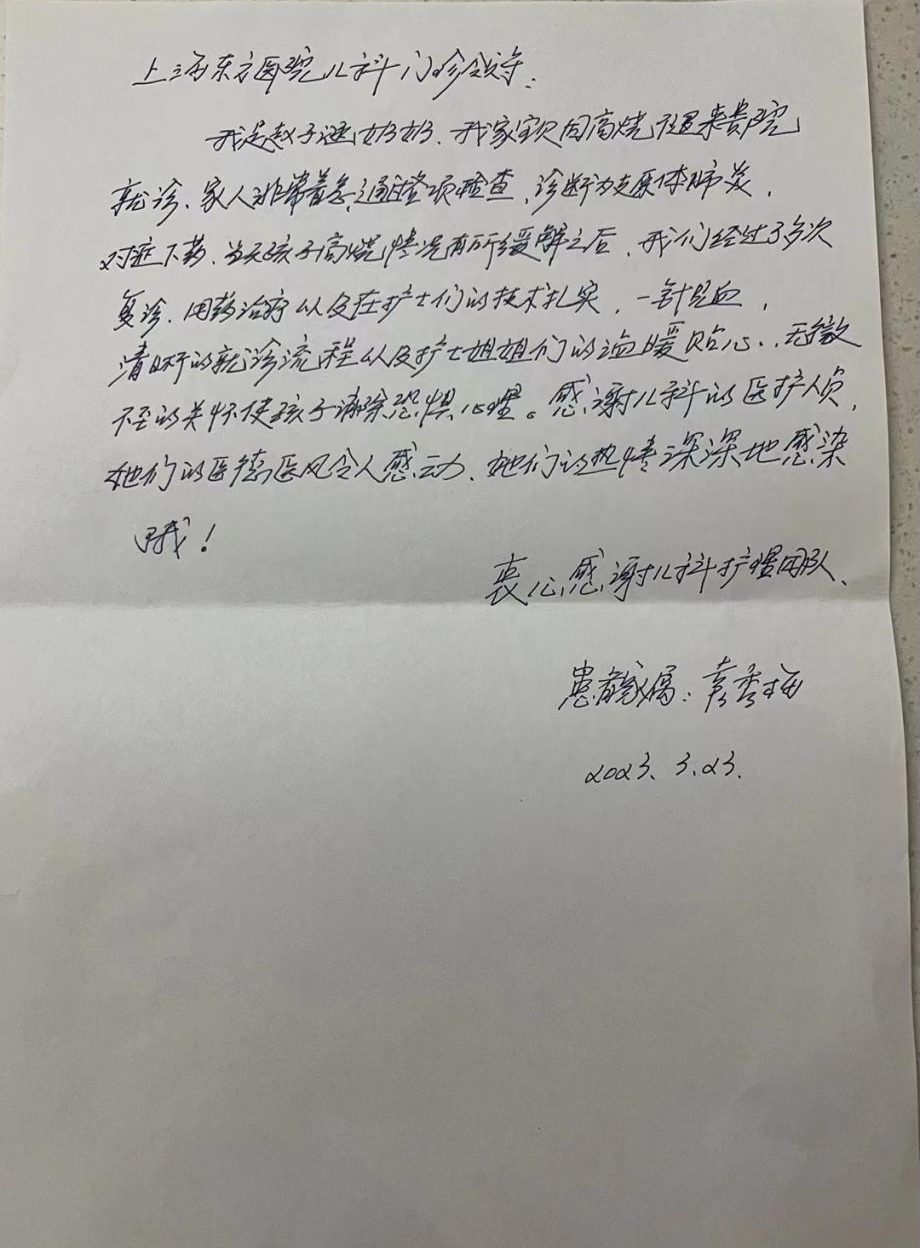 上海东方医院儿科门诊领导：
我是赵子涵奶奶、我家宝贝因高烧不退来贵院
就诊、家人非常着急，通过各项检查，诊断为支原体肺炎，
对症下药、当天孩子高烧情况有所缓解之后、我们经过了多次
复诊、用药治疗以及在护士们的技术扎实，一针见血，
清晰的就诊流程以及护士姐姐们的温暖贴心、无微
不至的关怀使孩子消除恐惧心理。感谢儿科的医护人员，
她们的医德医风令人感动、她们的热情深深地感染
哦！
衷心感谢儿科护理团队、
患者家属：袁秀梅
2023.3.23.